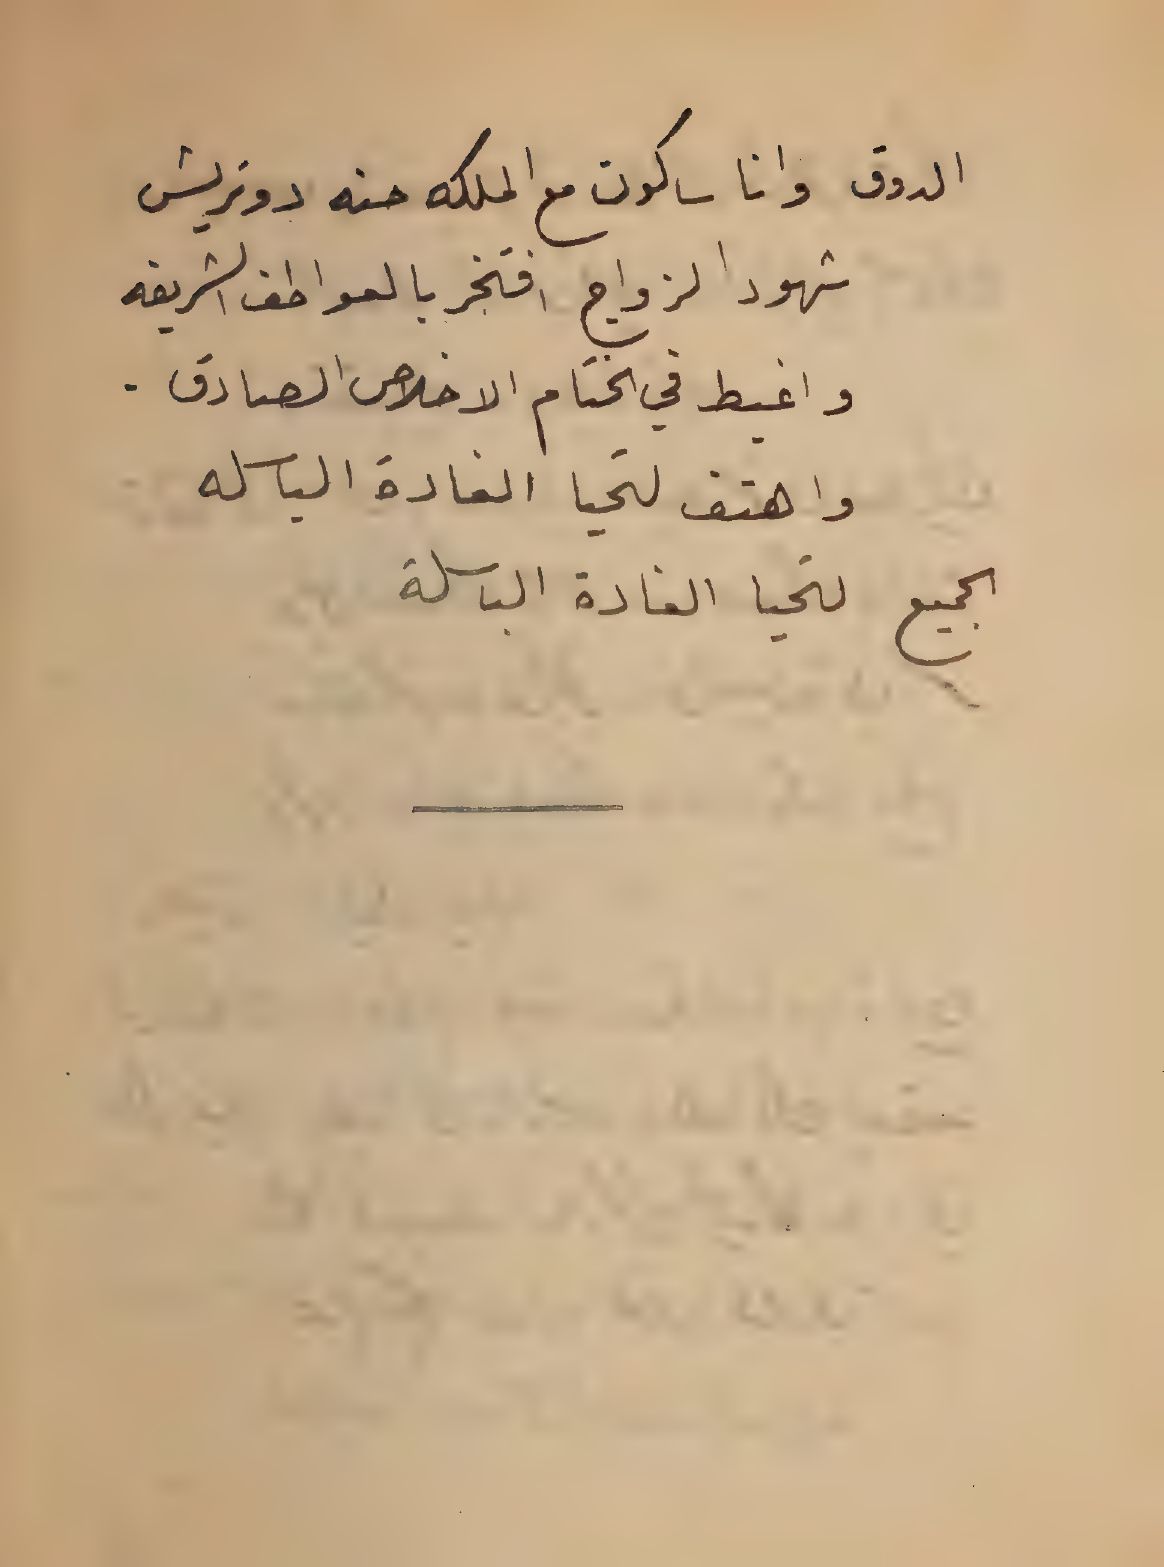 الدوق وانا ساكون مع الملكه حنه دوتريش
شهود الزواج افتخر بالعواطف الشريفه
واغبط في الختام الاخلاص الصادق .
واهتف لتحيا الغادة الباسله
الجميع لتحيا الغادة الباسلة